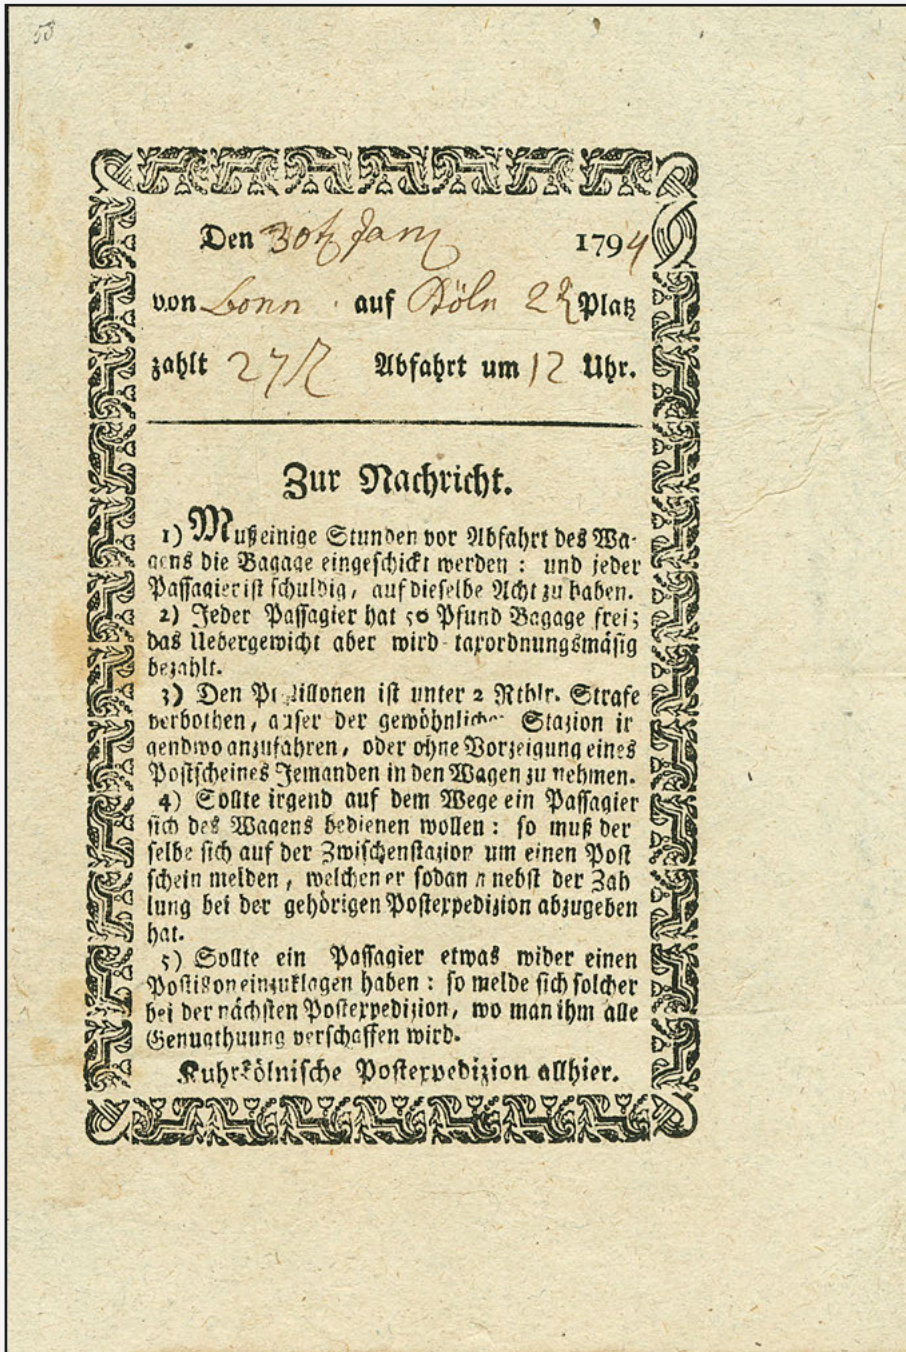 53
Den 30t Jany 1794
von Bonn auf Cöln 2 Platz
zahlt 27 Abfahrt um 12 Uhr.
Zur Nachricht.
1) Muß einige Stunden vor Abfahrt des Wa-
gens die Bagage eingeschickt werden: und jeder
Passagier ist schuldig, auf dieselbe Acht zu haben.
2) Jeder Passagier hat 50 Pfund Bagage frei;
das Uebergewicht aber wird taxordnungsmäsig
bezahlt.
3) Den Postillonen ist unter 2 Rthlr. Strafe
verbothen, auser der gewöhnlichen Stazion ir
gendwo anzufahren, oder ohne Vorzeigung eines
Postscheines Jemanden in den Wagen zu nehmen.
4) Sollte irgend auf dem Wege ein Passagier
sich des Wagens bedienen wollen: so muß der
selbe sich auf der Zwischenstazion um einen Post
schein melden, welchen er sodann nebst der Zah
lung bei der gehörigen Postexpedizion abzugeben
hat.
5) Sollte ein Passagier etwas wider einen
Postillon einzuklagen haben: so melde sich solcher
bei der nächsten Postexpedizion, wo man ihm alle
Genugthuung verschaffen wird.
Kuhrkölnische Postexpedizion allhier.